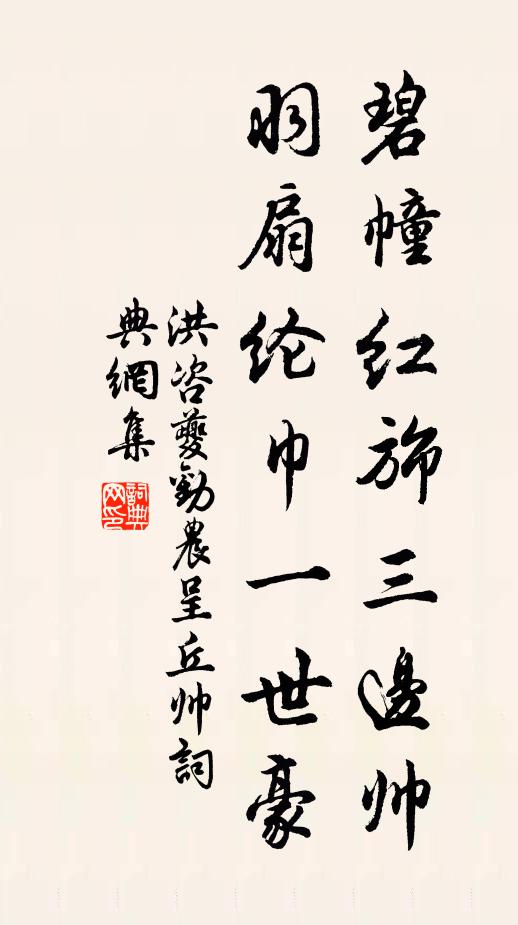 碧幢红旆三邊帅
羽扇纶巾一世豪
洪咨夔勸農呈丘帅詞
典網集
詞典
网印